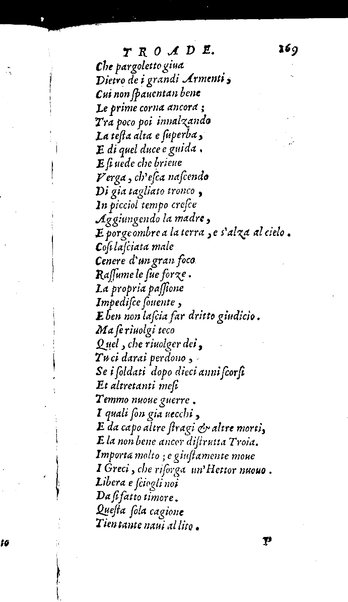 TROADE. 169
Che pargoletto giua
Dietro de i grandi Armenti,
Cui non ſpauentan bene
Le prime corna ancora;
Tra poco poi innalzando
La teſta alta e ſuperba,
E di quel duce e guida.
E ſi uede che brieue
Verga, ch'eſca naſcendo
Di gia tagliato tronco,
In picciol tempo creſce
Aggiungendo la madre,
E porge ombre a la terra, e s'alza al cielo.
Coſi laſciata male
Cenere d'un gran foco
Raſſume le ſue forze.
La propria paſſione
Impediſce ſouente,
E ben non laſcia far dritto giudicio.
Ma ſe riuolgi teco
Quel, che riuolger dei,
Tu ci darai perdono,
Se i ſoldati dopo dieci anni ſcorſi
Et altretanti meſi
Temmo nuoue guerre.
I quali ſon gia uecchi,
E da capo altre ſtragi & altre morti,
E la non bene ancor diſtrutta Troia.
Importa molto; e giuſtamente moue
I Greci, che riſorga un'Hettor nuouo.
Libera e ſciogli noi
Da ſi fatto timore.
Queſta ſola cagione
Tien tante naui al lito.
P